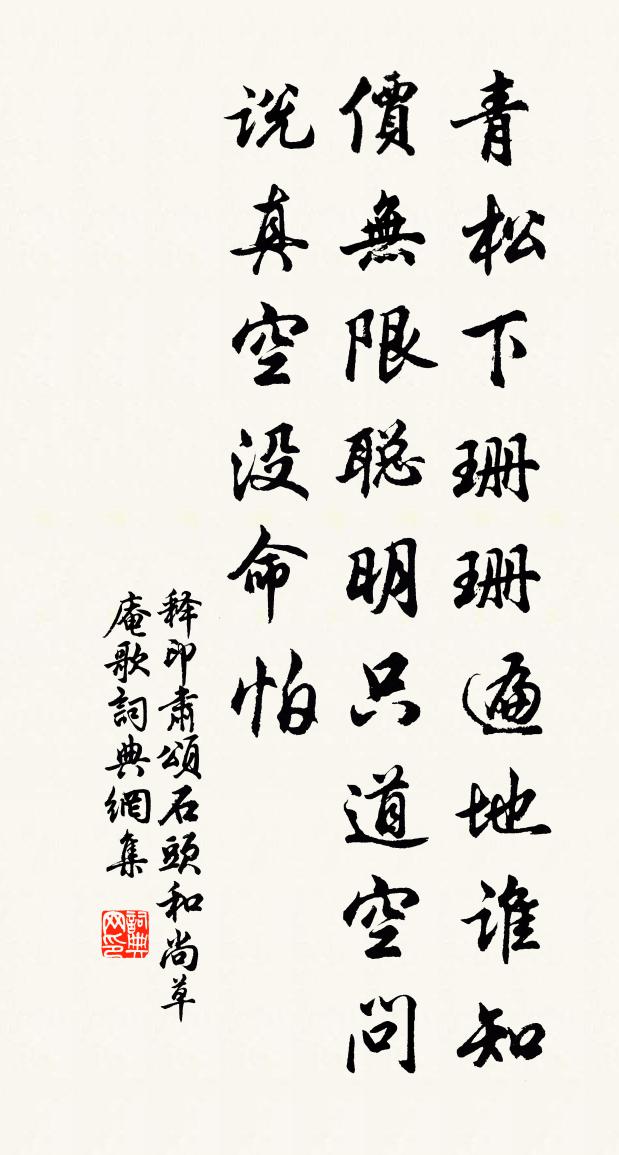 青松下珊珊遍地谁知
價無限聪明只道空問
说真空没命怕
释印肃頌石頭和尚草
庵歌詞典網集
詞典网印